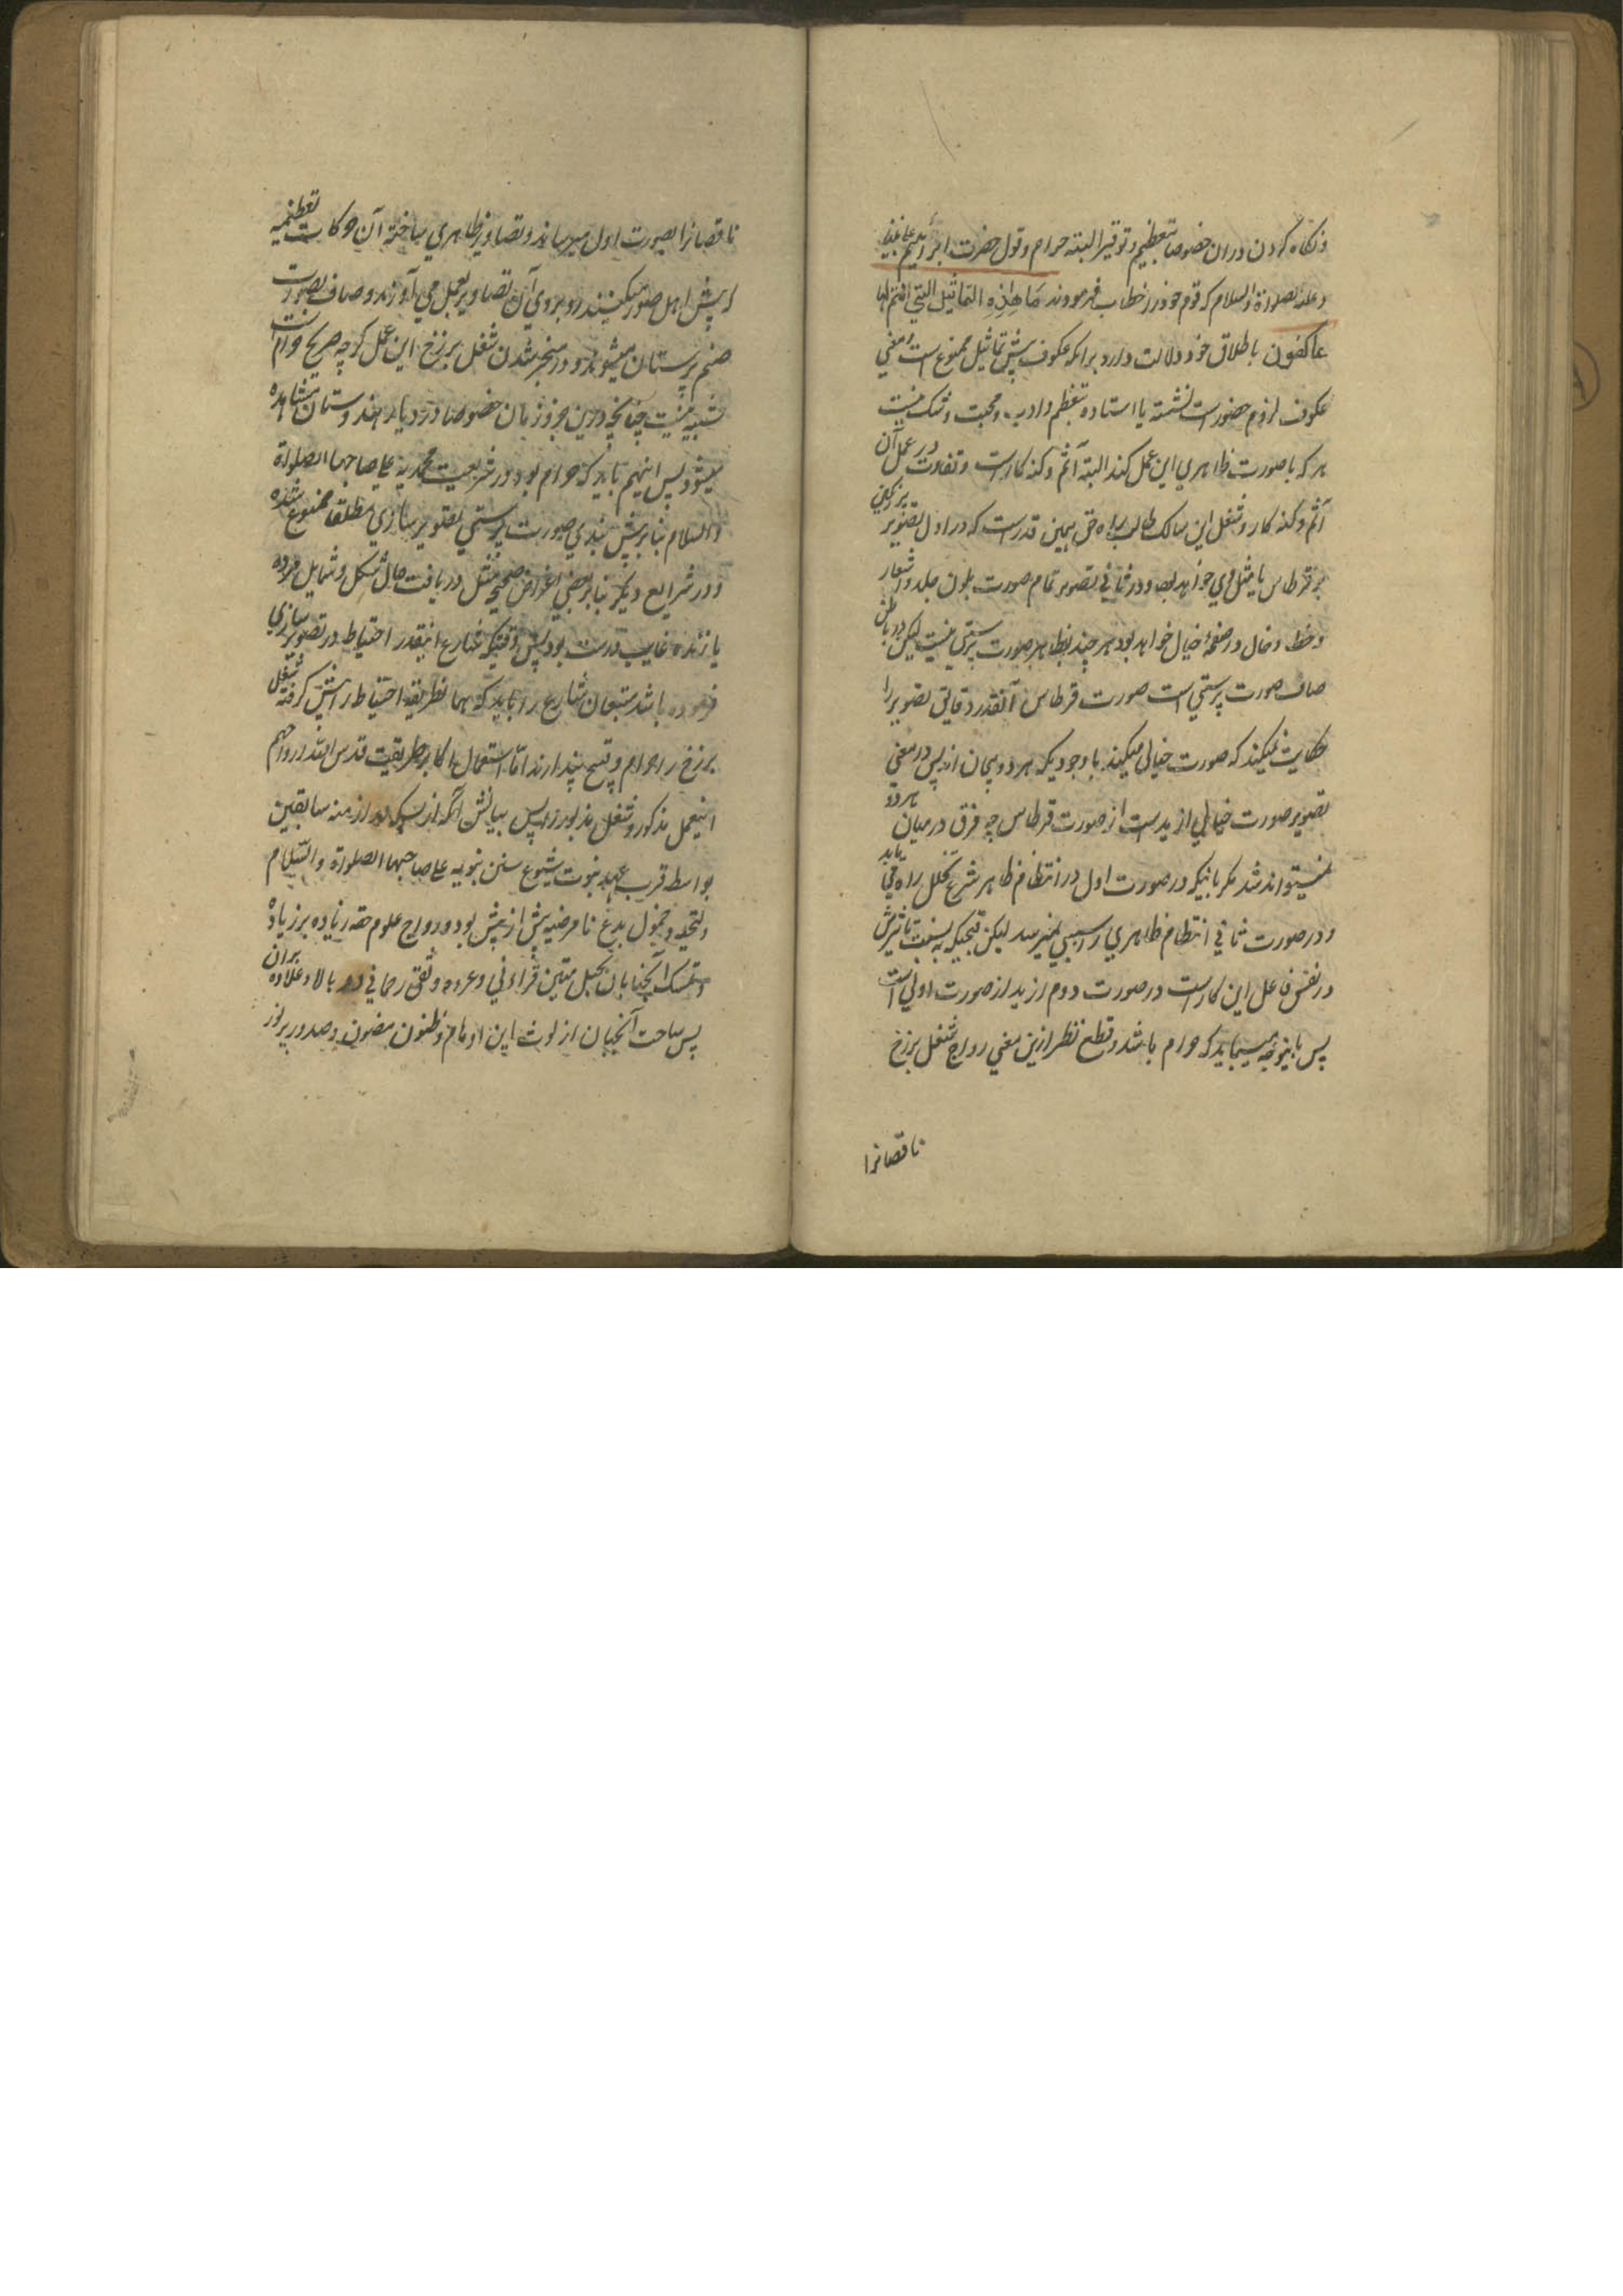 و نگاه کردن دران خصوصا بتعظیم و توقیر البته حرام و قول حضرت ابراهیم علی نبینا
و علیه الصلوة والسلام که قوم خود را خطاب فرمودند مَا هٰذِهِ التماثیل التی انتم لها
عاکفون باطلاق خود دلالت دارد برانکه عکوف پیش تماثیل ممنوع است و معنی
عکوف لزوم حضور است نشسته یا استاده بتعظیم و ادب و محبت و شک نیست
هر که با صورت ظاهری این عمل کند البته آثم و گنه کار است و تفاوت در عمل آن
آثم و گنه کار و شغل این سالک طالب راه حق همین قدر است که در اول تصویر
بر قرطاس یا مثل وی خواهد بود و در ثانی تصویر تمام صورت بلون جلد و اشعار
و خط و خال در صفحۀ خیال خواهد بود هر چند بظاهر صورت پرستی نیست لیکن در باطن
صاف صورت پرستی است صورت قرطاس آنقدر دقایق تصویر را
حکایت نمیکند که صورت خیالی میکند باوجودیکه هر دو بیجان اند پس در معنی
تصویر صورت خیالی ازید ست از صورت قرطاس چه فرق درمیان هر دو
نمیتواند شد مگر باینکه در صورت اول در انتظام ظاهر شرع تخلل راه می یابد
و در صورت ثانی انتظام ظاهری را آسیبی نمیرسد لیکن قبحیکه به نسبت تاثیرش
در نفس فاعل این کار است در صورت دوم ازید از صورت اولی است
پس باینوجه میباید که حرام باشد و قطع نظر ازین معنی رواج شغل برزخ
ناقصانرا
ناقصانرا بصورت اول میرساند و تصاویر ظاهری ساخته آن حرکات تعظیمیه
که پیش اهل صور میکنند روبروی آن تصاویر بعمل می آورند و صاف بصورت
صنم پرستان میشوند و در منجر شدن شغل برزخ این عمل که چه صریح حرام است
شبه نیست چنانچه درین جزو زمان خصوصا در دیار هندوستان مشاهده
میشود پس اینهم باید که حرام بود و در شریعت محمدیه علی صاحبها الصلوة
والسلام بنا بر پیش بندی صورت پرستی تصویر سازی مطلقا ممنوع شده
و در شرایع دیگر بنا بر بعضی اغراض صحیحه مثل دریافت حال شکل و شمایل مرده
یا زنده غایب درست بود پس وقتیکه شارع اینقدر احتیاط در تصویر سازی
فرموده باشد متبعان شارع را باید که همان طریقه احتیاط را پیش گرفته شغل
برزخ را حرام و قبیح پندارند اما استعمال اکابر طریقت قدس الله ارواحهم
اینعمل مذکور و شغل مذبور را پس بیانش آنکه از بسکه در ازمنه سابقین
بواسطه قرب عهد نبوت شیوع سنن نبویه علی صاحبها الصلوة والسلام
و التحیه و خمول بدع نامرضیه بیش از پیش بود و رواج علوم حقه زیاده بر زیاده
و تمسک آنجنابان بحبل متین قرآنی و عروه وثقی رحمانی دو بالا و علاوه بران
پس ساحت آنجنان از لوث این اوهام و ظنون مصون و صدور پر نور